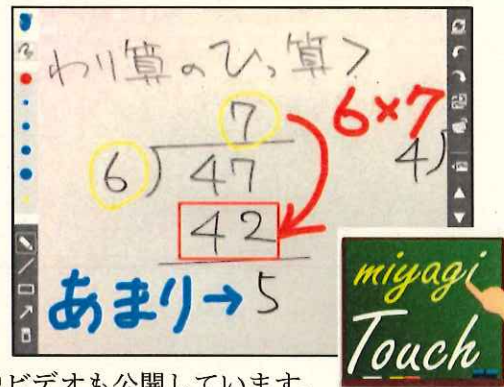 わり算のひっ算>
7
6×7
6)47
4)
42
あまり→5
miyagi
Touch
ビデオも公開しています